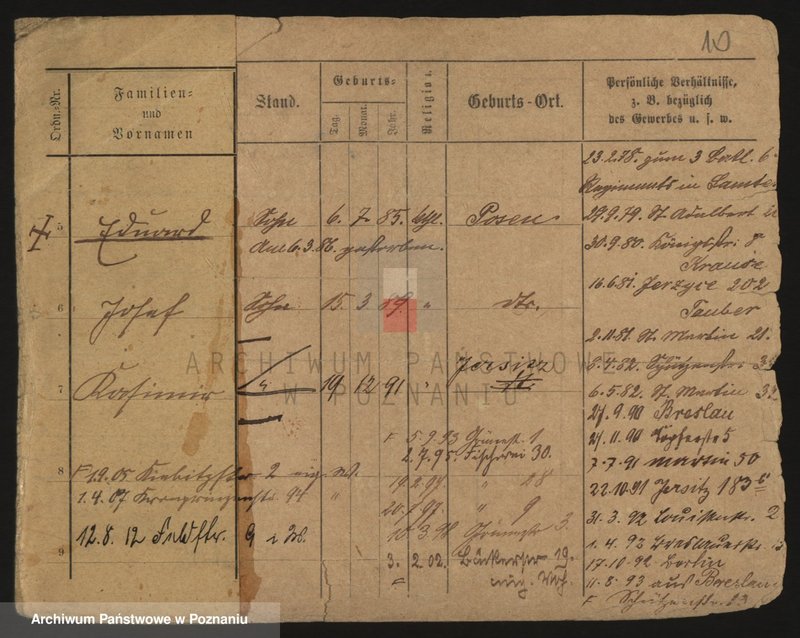 10
Ordn.-Nr.
Familien-
und
Vornamen
Stand.
Geburts-
Tag.
Monat.
Jahr.
Religion.
Geburts-Ort.
Persönliche Verhältnisse,
z. B. bezüglich
des Gewerbes u. s. w.
23.2.78. zum 3 Batl. 6
Regiments in Samter
5 Eduard Sohn 6. 7. 85. kthl. Posen
Am 6.3.86. gestorben.
29.9.79. St. Adalbert
30.9.80. Königsstr. 8
Krause
16.6.81. Jerzyce 202
Tauber
6 Josef Sohn 15. 3. 89. " dto.
2.11.81. St. Martin 21.
5.4.82. Schützenstr. 33
7 Kasimir " 19 12 91 " Jersitz
6.5.82. St. Martin 32
27.9.90 Breslau
21.11.90 Töpferstr 5
7.7.91 Martin 50
22.10.91 Jersitz 183
31.3.92 Louisenstr. 2
1.4.92 Breslauerstr
17.10.92 Berlin
11.8.93 aus Breslau
F Schützenstr. 23
F 5.9.93 Grünest. 1
2.7.95 Fischerei 30.
19.2.97 " 28
20.7.97. " 9
10.3.98 Grünestr 3.
3. 2.02. Bäckerstr 19.
8 F 19.05 Kiebitzstr 2
1.4.07 Kronprinzenstr 94 "
12.8.12 Feldstr. 9
9
ARCHIWUM PAŃSTWOWE
W POZNANIU
Archiwum Państwowe w Poznaniu